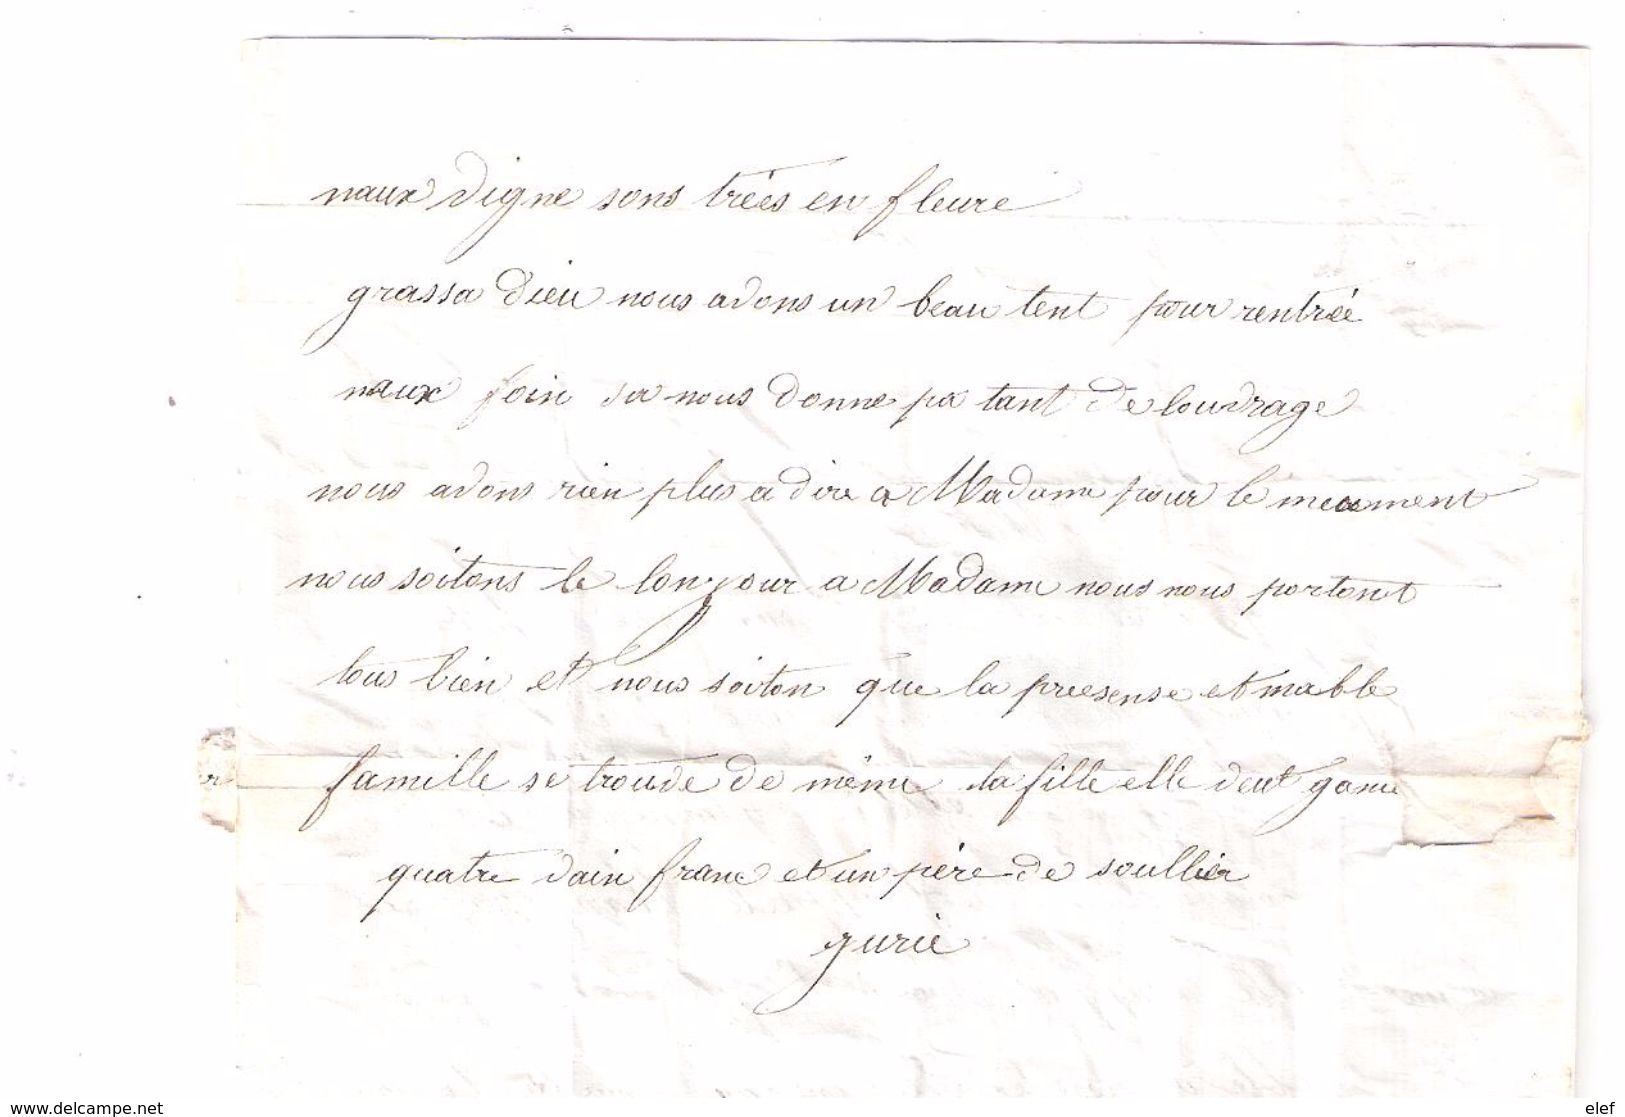 naux vigne sons trées en fleure
grassa dieu nous avons un beau tent pour rentrée
naux foin sa nous donne pa tant de louvrage
nous avons rien plus a dire a Madame pour le moment
nous soitons le bonjour a Madame nous nous portont
tous bien et nous soiton que la preesense et mable
famille se trouve de même la fille elle veut gane
quatre vain franc et un père de soullier
gurie
www.delcampe.net
elef